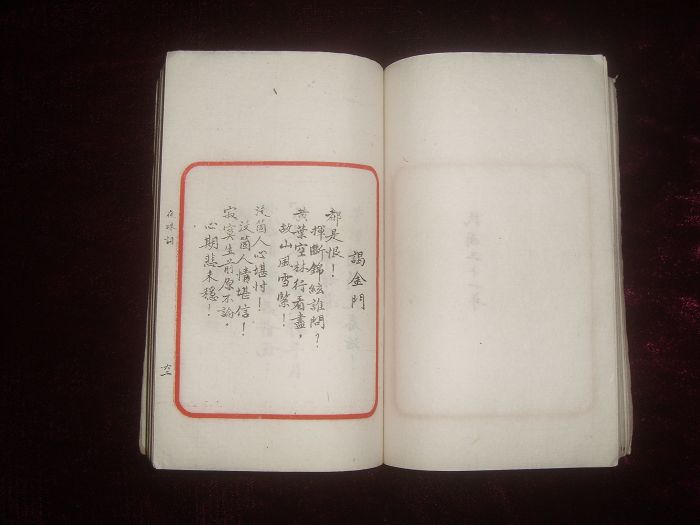 謁金門
都是恨！
揮斷錦絃誰問？
黃葉空林行看盡，
故山風雪緊！
沒箇人心堪忖！
沒箇人情堪信！
寂寞生前原不論，
心期悲未穩！
夜珠詞
六二